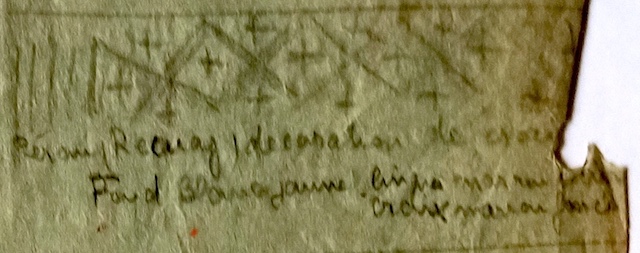 Recuay, décoration de croix
Fond Blanc jaune lignes marron
croix marron foncé